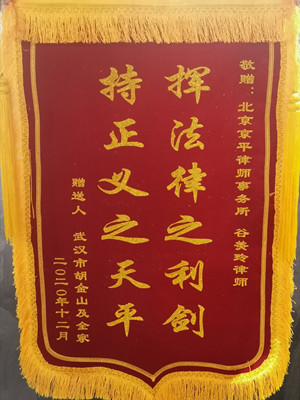 敬赠：北京京平律师事务所 谷美玲律师
挥法律之利剑
持正义之天平
赠送人 武汉市胡金山及全家
二〇二〇年十二月